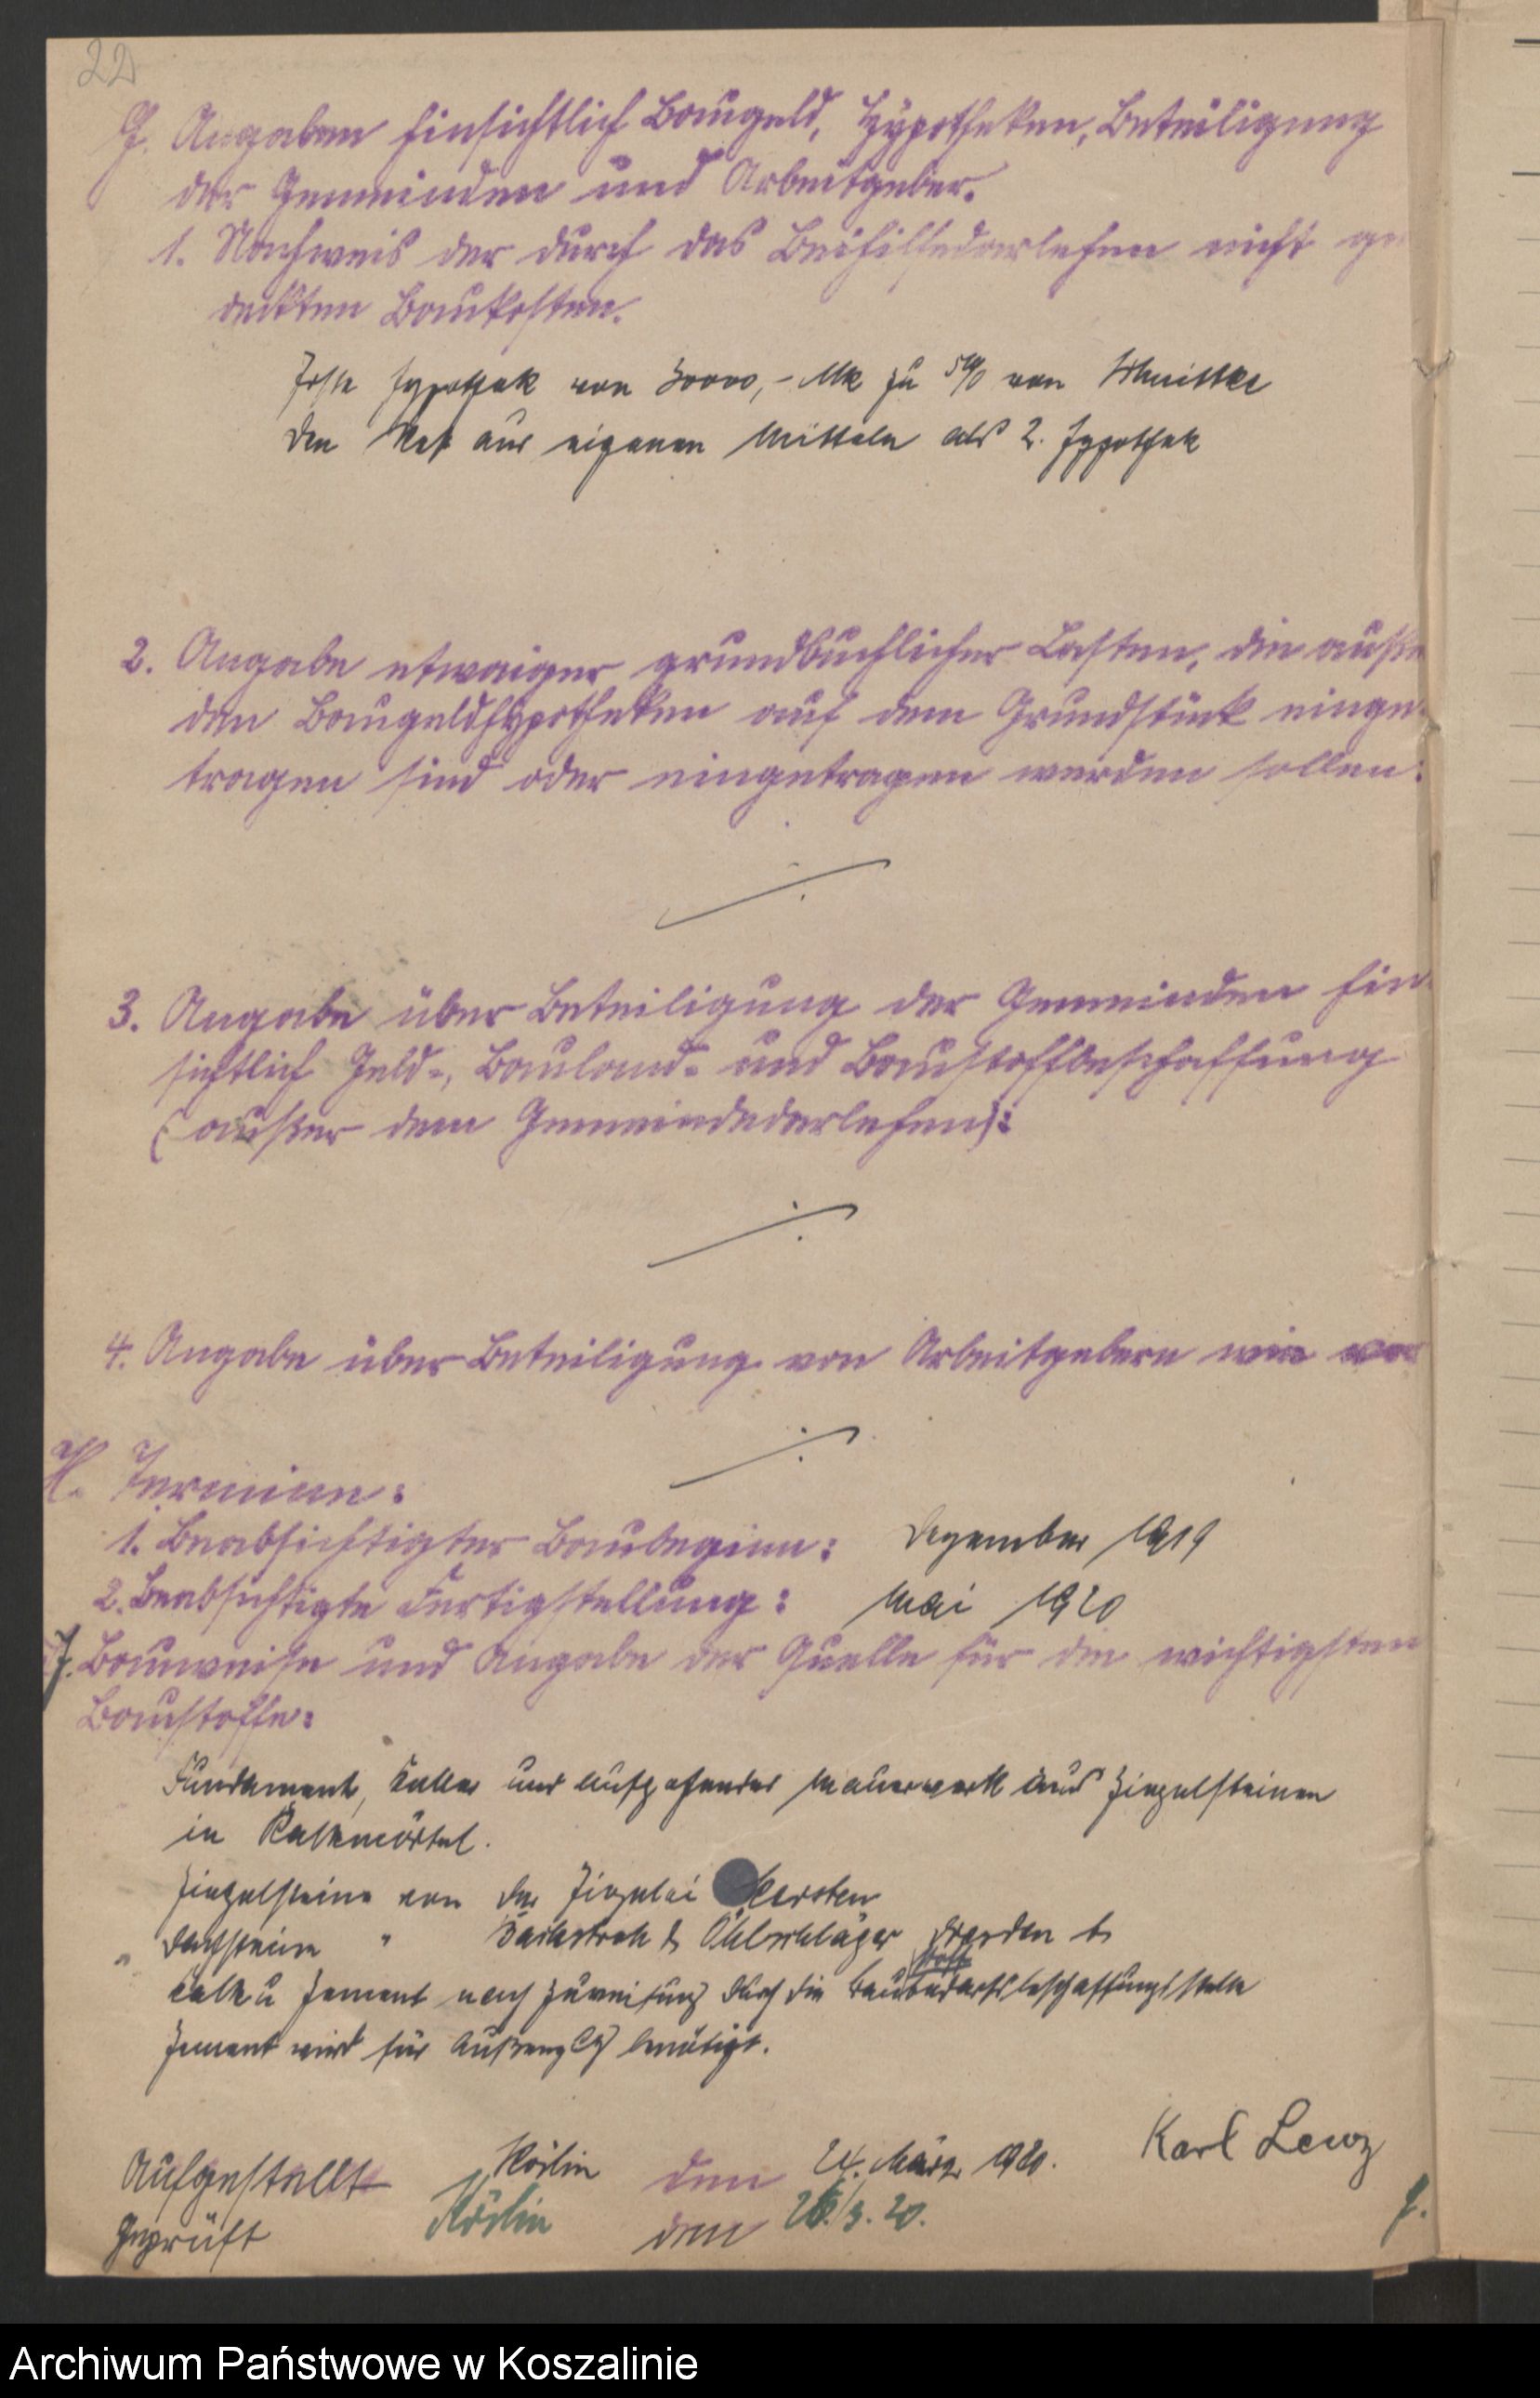 22
G. Angaben hinsichtlich Baugeld, Hypotheken, Beteiligung
der Gemeinden und Arbeitgeber.
1. Nachweis der durch das Beihilfedarlehen nicht ge
deckten Baukosten.
Erste Hypothek von 30000,- Mk zu 5% von
Den Rest aus eigenen Mitteln als 2. Hypothek
2. Angabe etwaiger grundbuchlicher Lasten, die auße
den Baugeldhypotheken auf dem Grundstück einge-
tragen sind oder eingetragen werden sollen:
3. Angabe über Beteiligung der Gemeinden hin-
sichtlich Geld-, Bauland- und Baustoffbeschaffung
(außer dem Gemeindedarlehen):
4. Angabe über Beteiligung von Arbeitgebern wie vor
H. Termine:
1. Beabsichtigter Baubeginn: Dezember 1919
2. Beabsichtigte Fertigstellung: Mai 1920
J. Bauweise und Angabe der Quelle für die wichtigsten
Baustoffe:
Fundament, Keller und aufgehendes Mauerwerk aus Ziegelsteinen
in Kalkmörtel.
Ziegelsteine von der Ziegelei Kersten
Dachsteine " & Öhlschläger
Kalk u Zement nach Zuweisung durch die
Zement wird für benötigt.
Aufgestellt Köslin den 24. März 1920. Karl Lenz
Geprüft Köslin den 26./3. 20.
Archiwum Państwowe w Koszalinie